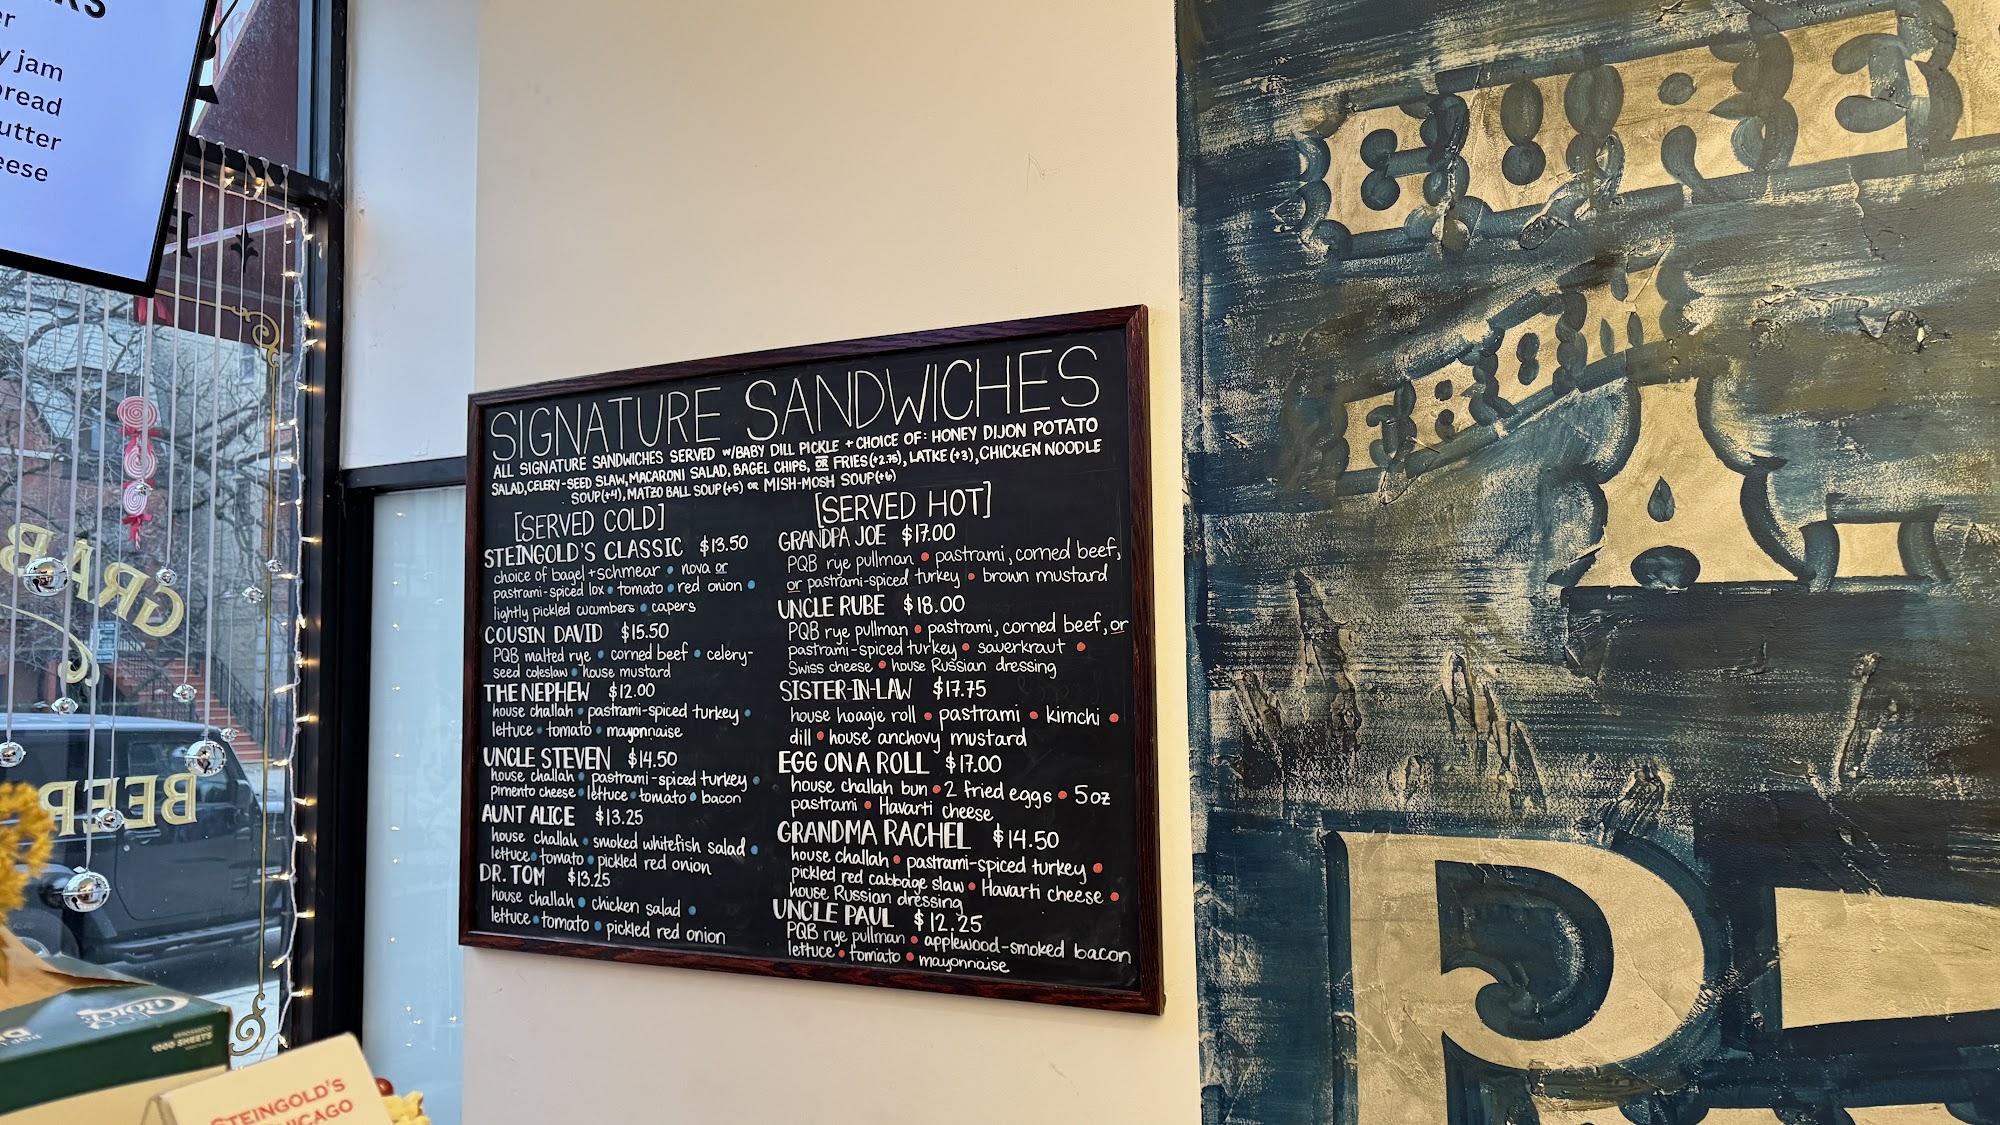 y jam
SIGNATURE SANDWICHES
ALL SIGNATURE SANDWICHES SERVED w/BABY DILL PICKLE + CHOICE OF: HONEY DIJON POTATO
SALAD, CELERY-SEED SLAW, MACARONI SALAD, BAGEL CHIPS, OR FRIES (+2.75), LATKE (+3), CHICKEN NOODLE
SOUP (+4), MATZO BALL SOUP (+5) OR MISH-MOSH SOUP (+6)
[SERVED COLD]
STEINGOLD'S CLASSIC $13.50
choice of bagel + schmear • nova or
pastrami-spiced lox • tomato • red onion •
lightly pickled cucumbers • capers
COUSIN DAVID $15.50
PQB malted rye • corned beef • celery-
seed coleslaw • house mustard
THE NEPHEW $12.00
house challah • pastrami-spiced turkey •
lettuce • tomato • mayonnaise
UNCLE STEVEN $14.50
house challah • pastrami-spiced turkey •
pimento cheese • lettuce • tomato • bacon
AUNT ALICE $13.25
house challah • smoked whitefish salad •
lettuce • tomato • pickled red onion
DR. TOM $13.25
house challah • chicken salad •
lettuce • tomato • pickled red onion
[SERVED HOT]
GRANDPA JOE $17.00
PQB rye pullman • pastrami, corned beef,
or pastrami-spiced turkey • brown mustard
UNCLE RUBE $18.00
PQB rye pullman • pastrami, corned beef, or
pastrami-spiced turkey • sauerkraut •
Swiss cheese • house Russian dressing
SISTER-IN-LAW $17.75
house hoagie roll • pastrami • kimchi •
dill • house anchovy mustard
EGG ON A ROLL $17.00
house challah bun • 2 fried eggs • 5oz
pastrami • Havarti cheese
GRANDMA RACHEL $14.50
house challah • pastrami-spiced turkey •
pickled red cabbage slaw • Havarti cheese •
house Russian dressing
UNCLE PAUL $12.25
PQB rye pullman • applewood-smoked bacon
lettuce • tomato • mayonnaise
CURE
FROM
A-
P
GRAB
BEER
1000 SHEETS
STEINGOLD'S
CHICAGO